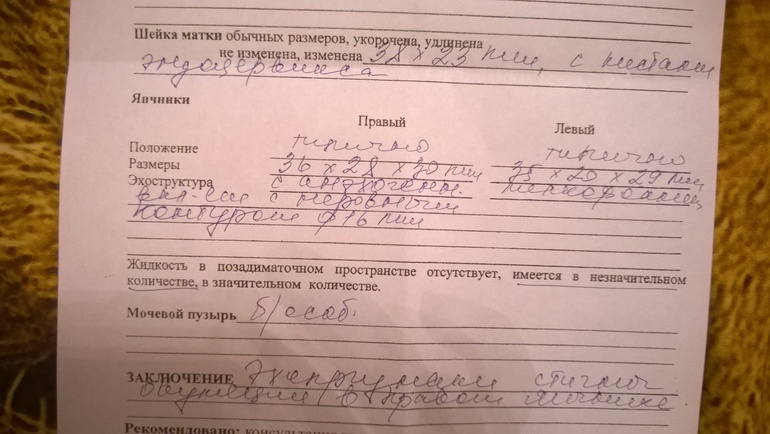 Шейка матки обычных размеров, укорочена, удлинена
не изменена, изменена 38 x 23 мм, с кистами
эндоцервикса
Яичники
Правый Левый
Положение типично типично
Размеры 36 x 28 x 30 мм 35 x 20 x 29 мм
Эхоструктура с анэхоген.
вкл-ем с неровным
контуром ф16 мм
Жидкость в позадиматочном пространстве отсутствует, имеется в незначительном
количестве, в значительном количестве.
Мочевой пузырь б/особ.
ЗАКЛЮЧЕНИЕ Эхопризнаки
овуляции в правом яичнике
Рекомендовано: